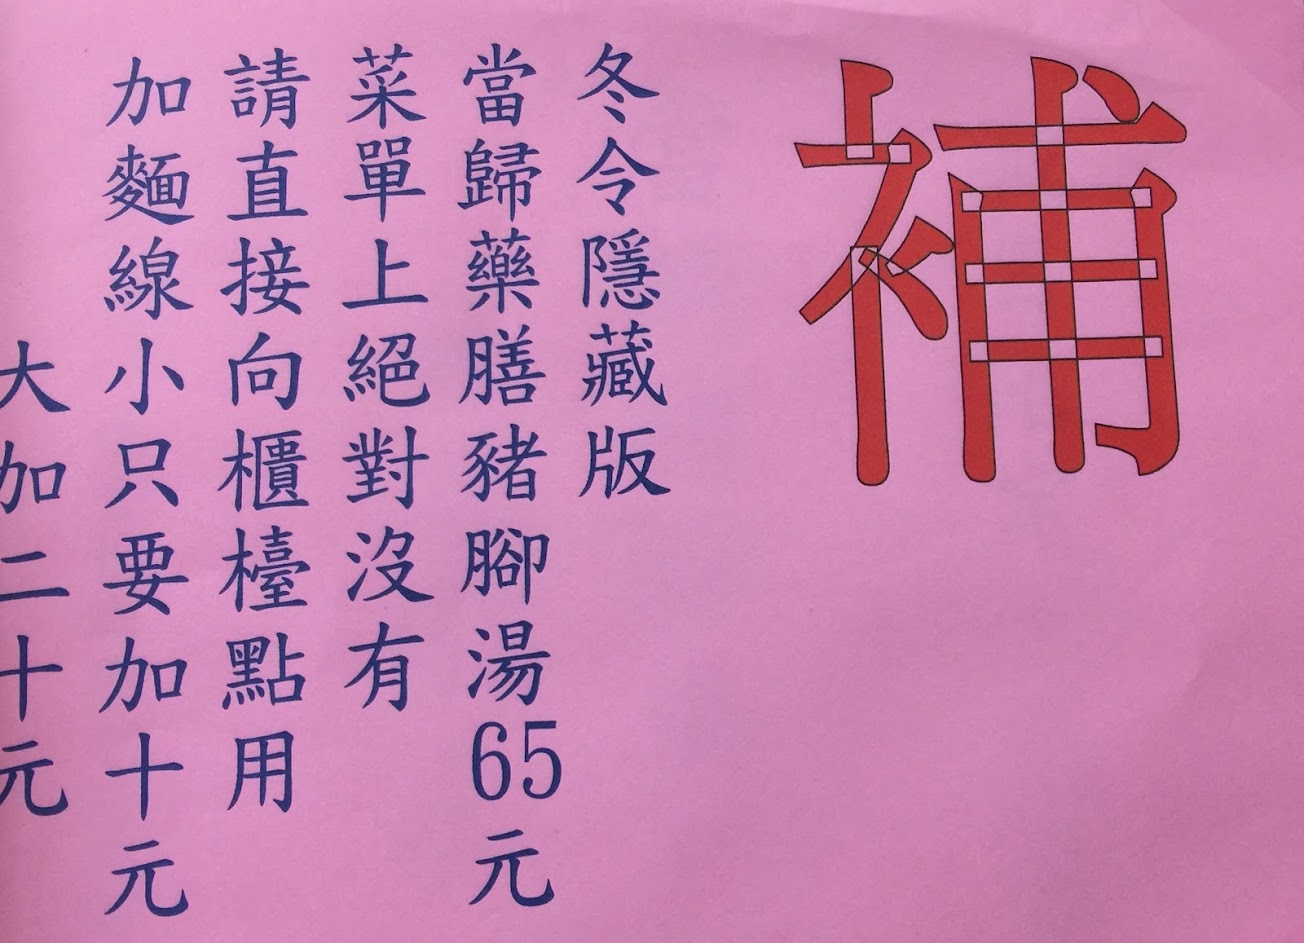 補
冬令隱藏版
當歸藥膳豬腳湯65元
菜單上絕對沒有
請直接向櫃檯點用
加麵線小只要加十元
大加二十元